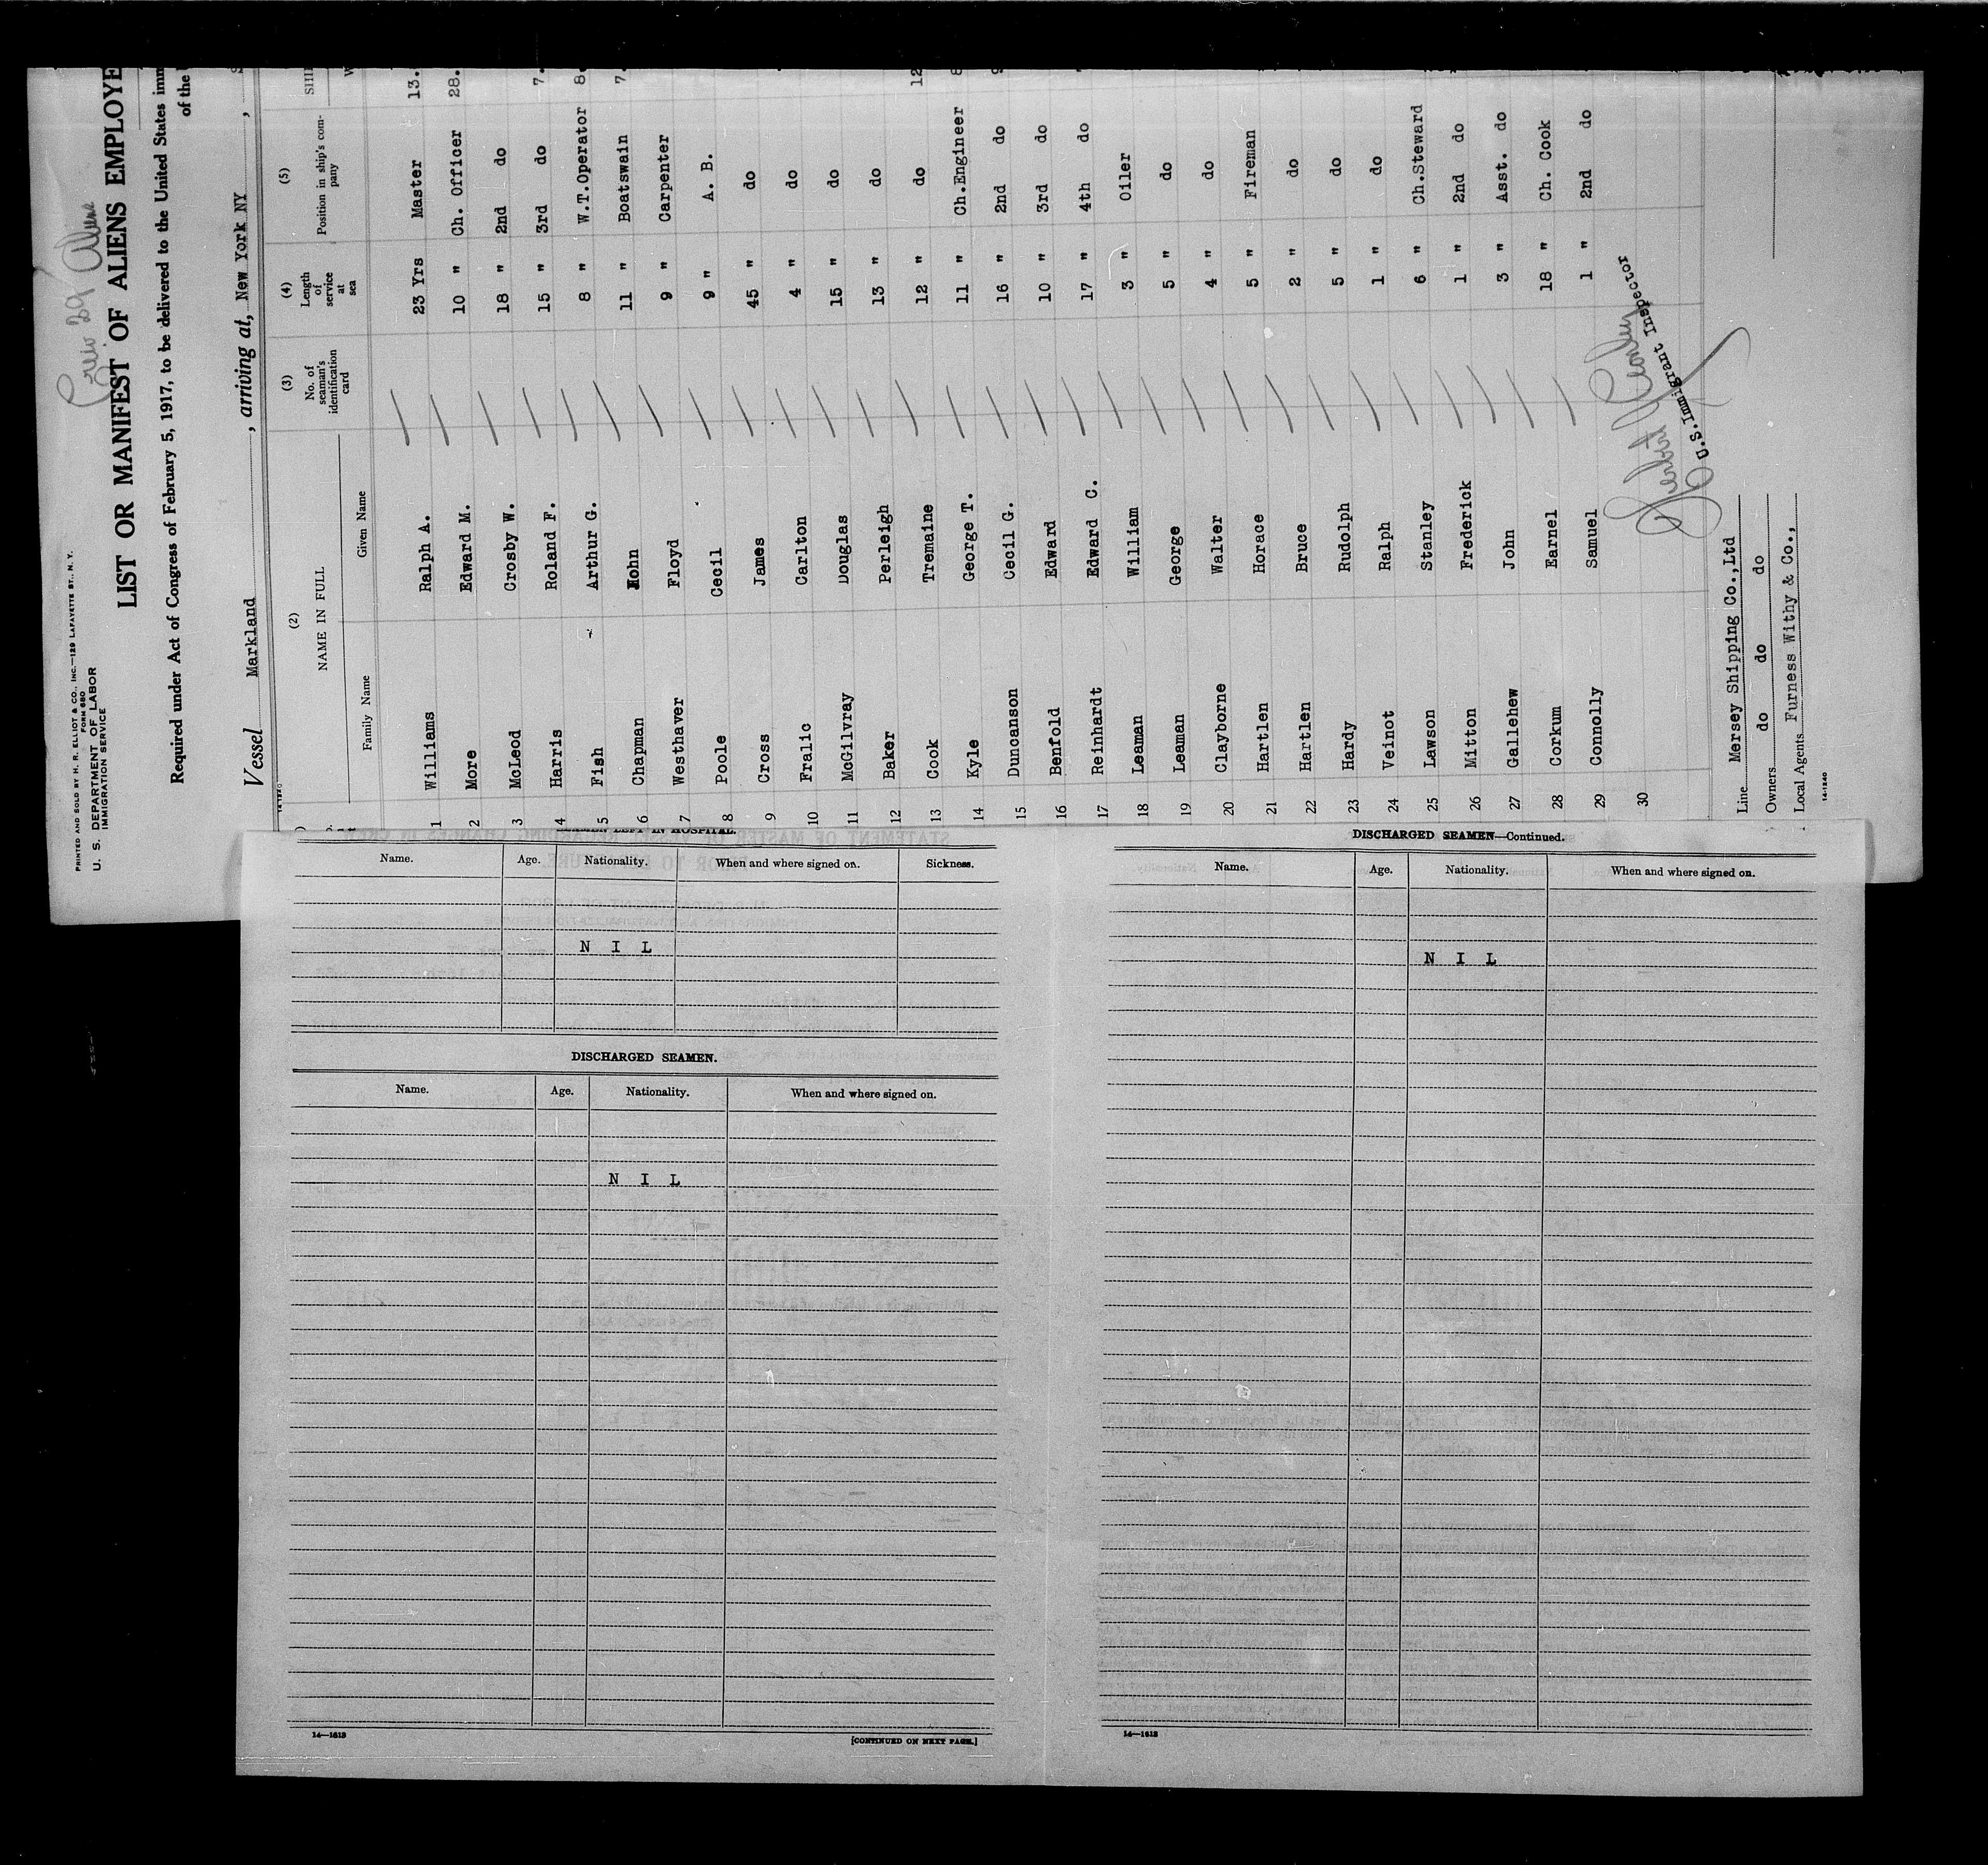 PRINTED AND SOLD BY H. R. ELLIOT & CO., INC.—129 LAFAYETTE ST., N. Y.
FORM 680
U. S. DEPARTMENT OF LABOR
IMMIGRATION SERVICE
Crew 29 Aliens
LIST OR MANIFEST OF ALIENS EMPLOYE
Required under Act of Congress of February 5, 1917, to be delivered to the United States imm
of the
Vessel Markland, arriving at, New York NY,
(2) (3) (4) (5)
NAME IN FULL No. of seaman's identification card Length of service at sea Position in ship's com-pany SHIP
Family Name Given Name
1 Williams Ralph A. 23 Yrs Master 13.
2 More Edward M. 10 " Ch. Officer 28.
3 McLeod Crosby W. 18 " 2nd do
4 Harris Roland F. 15 " 3rd do 7.
5 Fish Arthur G. 8 " W.T.Operator 8
6 Chapman John 11 " Boatswain 7.
7 Westhaver Floyd 9 " Carpenter
8 Poole Cecil 9 " A. B.
9 Cross James 45 " do
10 Fralic Carlton 4 " do
11 McGilvray Douglas 15 " do
12 Baker Perleigh 13 " do
13 Cook Tremaine 12 " do 12
14 Kyle George T. 11 " Ch.Engineer 8
15 Duncanson Cecil G. 16 " 2nd do
16 Benfold Edward 10 " 3rd do
17 Reinhardt Edward C. 17 " 4th do
18 Leaman William 3 " Oiler
19 Leaman George 5 " do
20 Clayborne Walter 4 " do
21 Hartlen Horace 5 " Fireman
22 Hartlen Bruce 2 " do
23 Hardy Rudolph 5 " do
24 Veinot Ralph 1 " do
25 Lawson Stanley 6 " Ch.Steward
26 Mitton Frederick 1 " 2nd do
27 Gallehew John 3 " Asst. do
28 Corkum Earnel 18 " Ch. Cook
29 Connolly Samuel 1 " 2nd do
30
U.S.Immigrant Inspector
Line Mersey Shipping Co.,Ltd
Owners do do do
Local Agents Furness Withy & Co.,
14-1240
SEAMEN LEFT IN HOSPITAL.
Name. Age. Nationality. When and where signed on. Sickness.
N I L
DISCHARGED SEAMEN.
Name. Age. Nationality. When and where signed on.
N I L
14—1613
[CONTINUED ON NEXT PAGE.]
DISCHARGED SEAMEN—Continued.
Name. Age. Nationality. When and where signed on.
N I L
14—1613